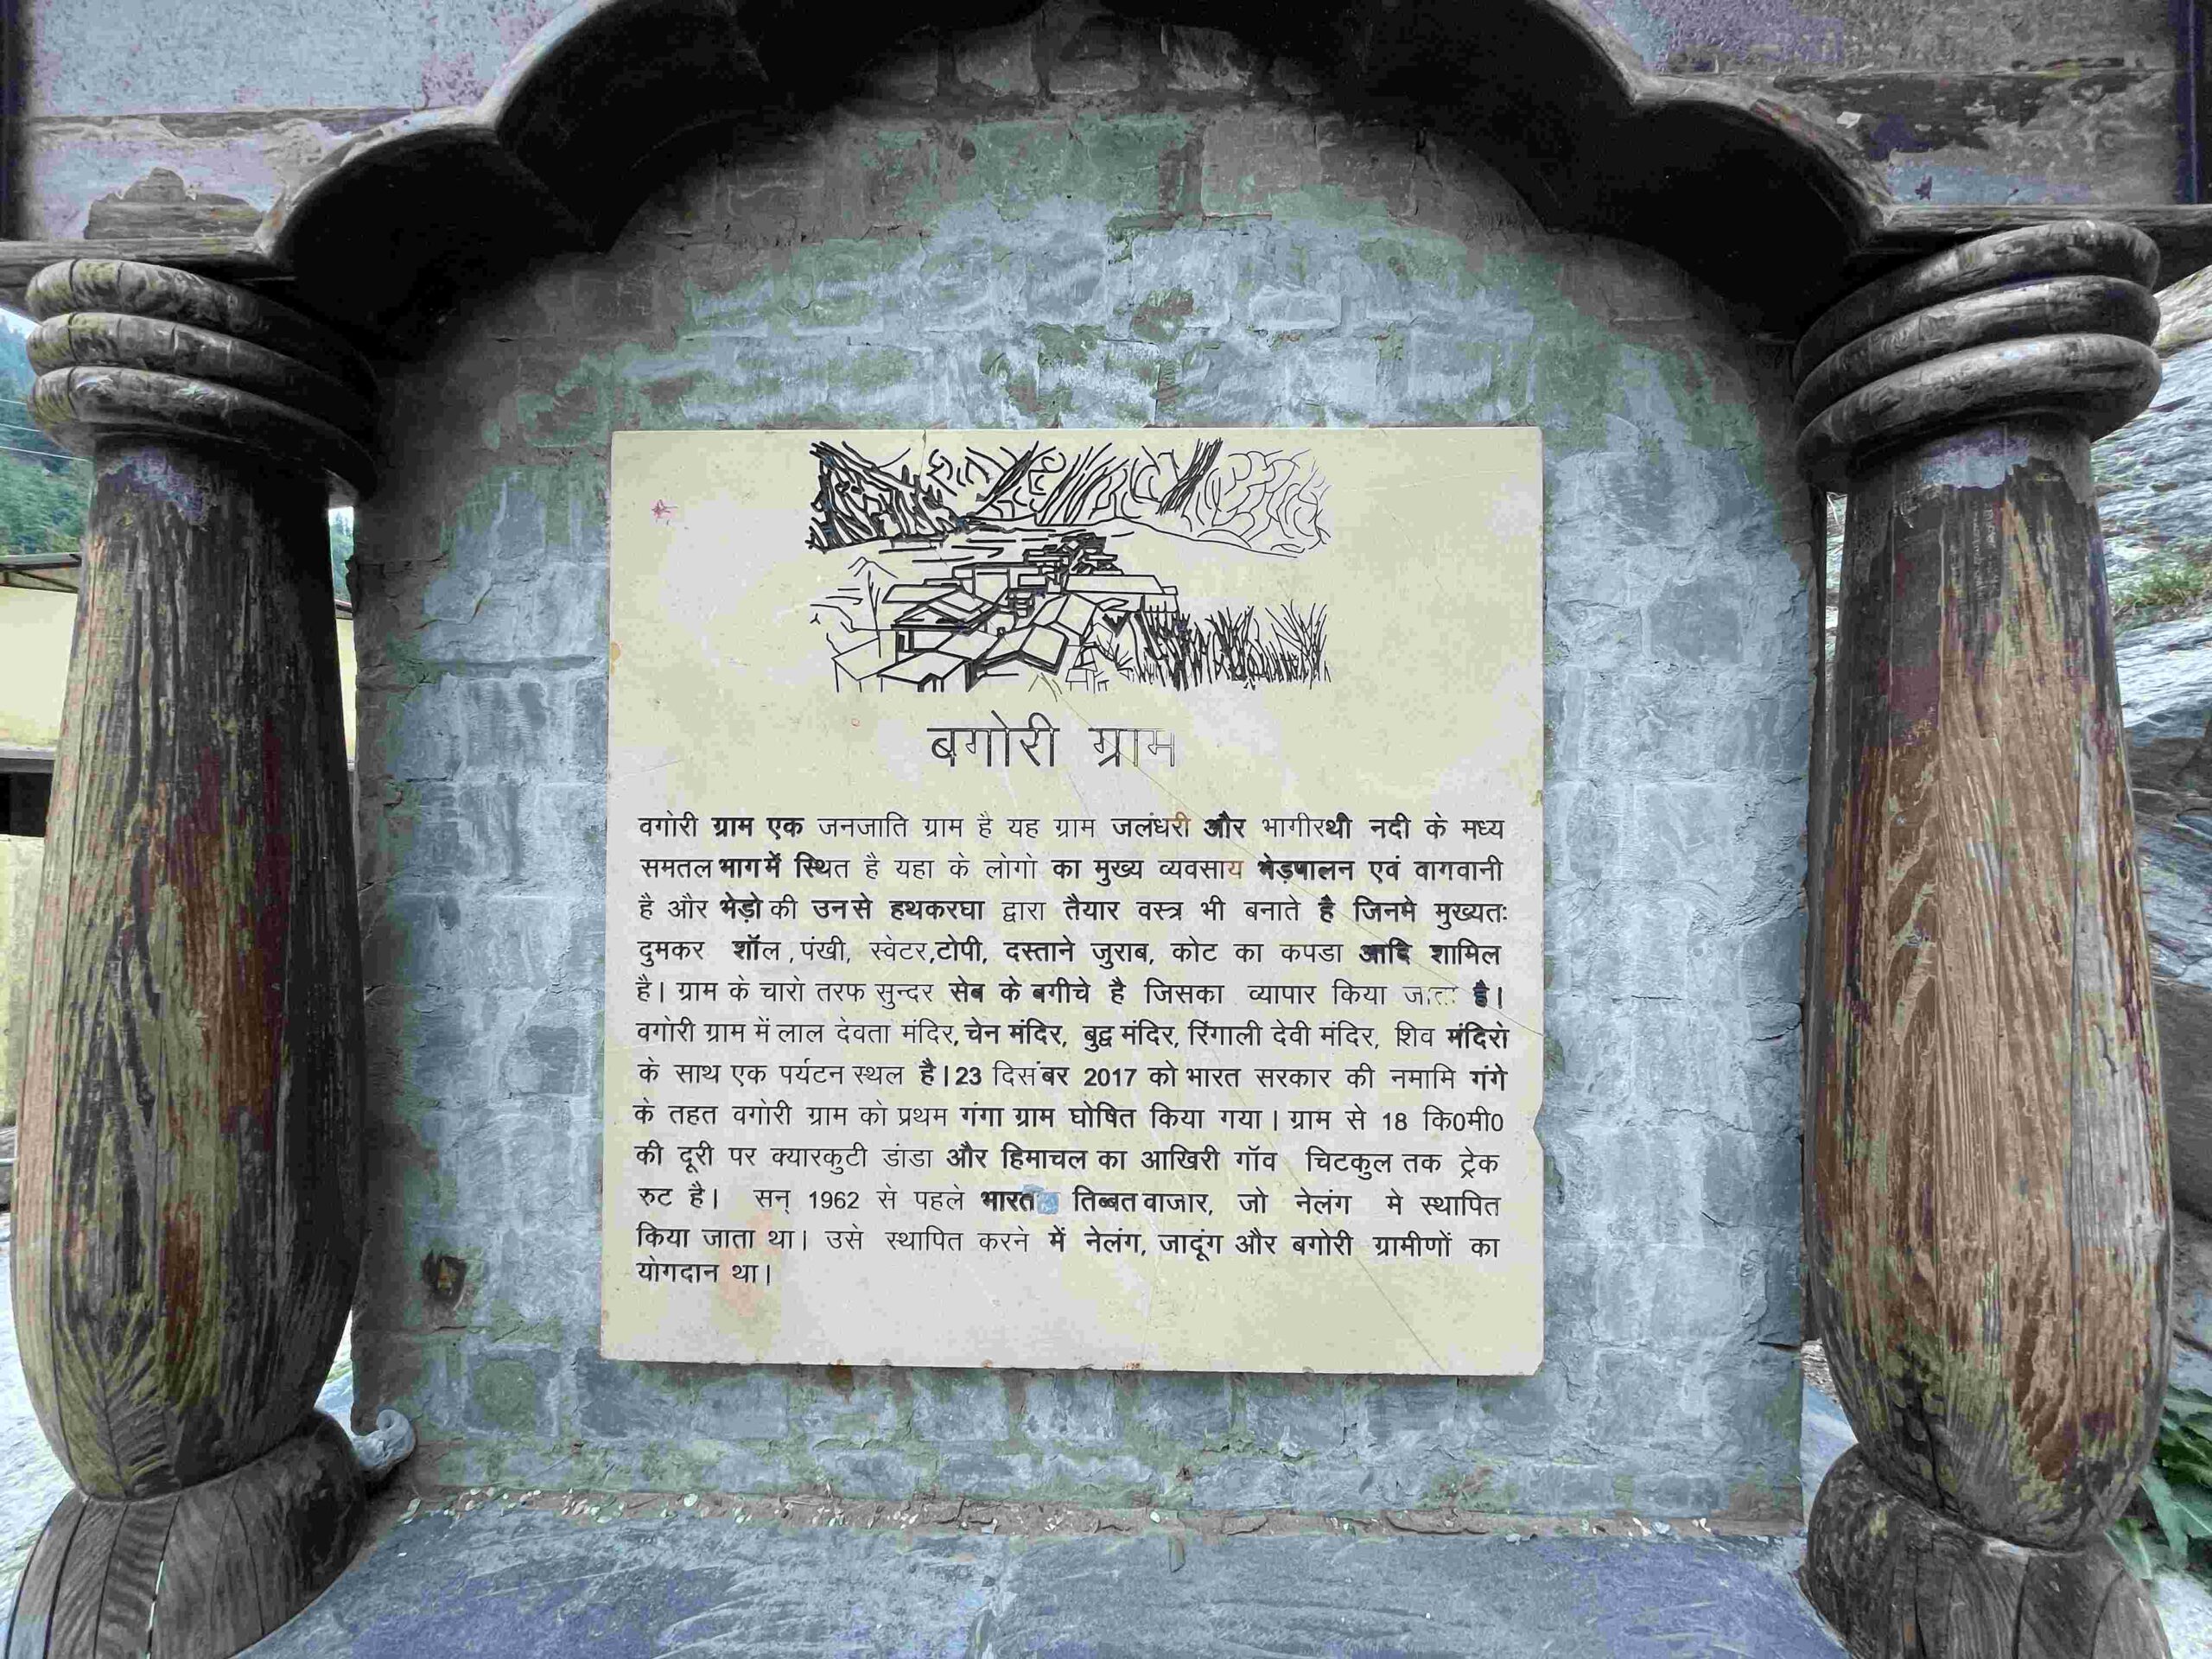 बगोरी ग्राम
वगोरी ग्राम एक जनजाति ग्राम है यह ग्राम जलंधरी और भागीरथी नदी के मध्य
समतल भाग में स्थित है यहा के लोगो का मुख्य व्यवसाय भेड़पालन एवं वागवानी
है और भेड़ो की उनसे हथकरघा द्वारा तैयार वस्त्र भी बनाते है जिनमे मुख्यतः
दुमकर शॉल, पंखी, स्वेटर,टोपी, दस्ताने जुराब, कोट का कपडा आदि शामिल
है। ग्राम के चारो तरफ सुन्दर सेब के बगीचे है जिसका व्यापार किया जाता है।
वगोरी ग्राम में लाल देवता मंदिर, चेन मंदिर, बुद्व मंदिर, रिंगाली देवी मंदिर, शिव मंदिरो
के साथ एक पर्यटन स्थल है। 23 दिसंबर 2017 को भारत सरकार की नमामि गंगे
के तहत वगोरी ग्राम को प्रथम गंगा ग्राम घोषित किया गया। ग्राम से 18 कि0मी0
की दूरी पर क्यारकुटी डांडा और हिमाचल का आखिरी गॉव चिटकुल तक ट्रेक
रुट है। सन् 1962 से पहले भारत तिब्बत वाजार, जो नेलंग मे स्थापित
किया जाता था। उसे स्थापित करने में नेलंग, जादूंग और बगोरी ग्रामीणों का
योगदान था।